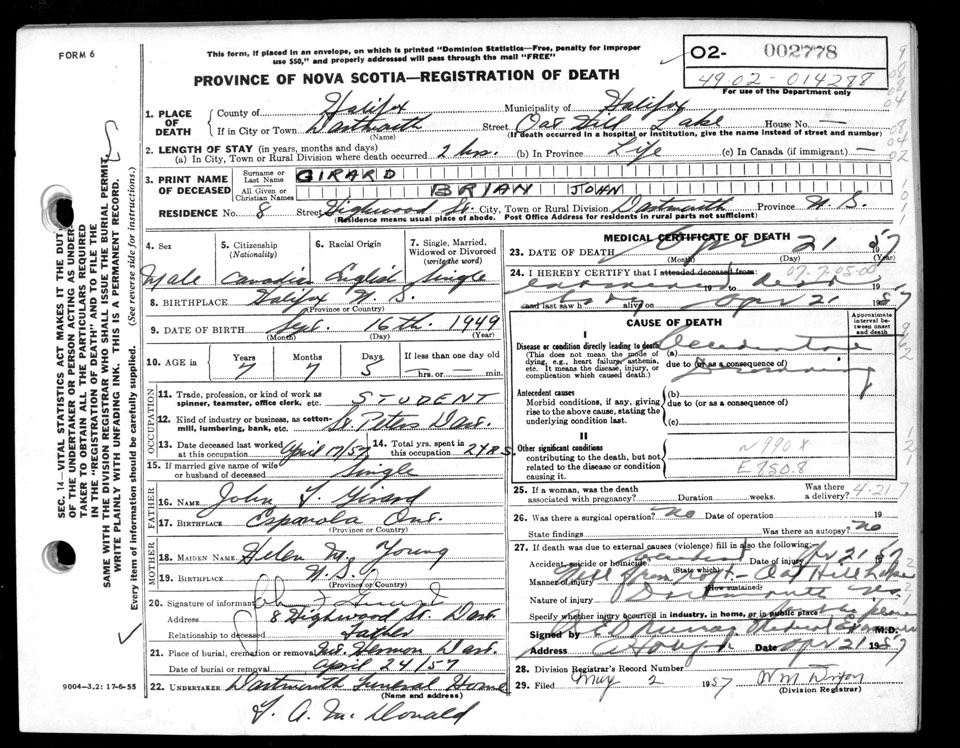 FORM 6
This form, if placed in an envelope, on which is printed "Dominion Statistics—Free, penalty for improper
use $50," and properly addressed will pass through the mail "FREE"
PROVINCE OF NOVA SCOTIA—REGISTRATION OF DEATH
02- 002778
49.02-014288
For use of the Department only
1. PLACE OF DEATH
County of Halifax Municipality of Halifax
If in City or Town Dartmouth Street Oat Hill Lake House No. —
(Name) (If death occurred in a hospital or institution, give the name instead of street and number)
2. LENGTH OF STAY (in years, months and days)
(a) In City, Town or Rural Division where death occurred 2 hrs. (b) In Province Life (c) In Canada (if immigrant) —
3. PRINT NAME OF DECEASED
Surname or Last Name GIRARD
All Given or Christian Names BRIAN JOHN
RESIDENCE No. 8 Street Highwood St. City, Town or Rural Division Dartmouth Province N.S.
(Residence means usual place of abode. Post Office Address for residents in rural parts not sufficient)
4. Sex 5. Citizenship (Nationality) 6. Racial Origin 7. Single, Married, Widowed or Divorced (write the word)
Male Canadian English Single
8. BIRTHPLACE Halifax N.S.
(Province or Country)
9. DATE OF BIRTH Sept. 16th. 1949
(Month) (Day) (Year)
10. AGE in Years Months Days If less than one day old
7 7 5 — hrs. or — min.
OCCUPATION
11. Trade, profession, or kind of work as spinner, teamster, office clerk, etc. STUDENT
12. Kind of industry or business, as cotton-mill, lumbering, bank, etc. St. Peters Dart.
13. Date deceased last worked at this occupation April 17/57 14. Total yrs. spent in this occupation 2 YRS
15. If married give name of wife or husband of deceased Single
FATHER
16. NAME John Girard
17. BIRTHPLACE Espanola Ont.
(Province or Country)
MOTHER
18. MAIDEN NAME Helen M. Young
19. BIRTHPLACE N.S.
(Province or Country)
20. Signature of informant
Address 8 Highwood St. Dart.
Relationship to deceased Father
21. Place of burial, cremation or removal Mt. Hermon Dart.
Date of burial or removal April 24/57
22. UNDERTAKER Dartmouth Funeral Home
(Name and address)
A. McDonald
9004—3.2: 17-6-55
MEDICAL CERTIFICATE OF DEATH
23. DATE OF DEATH Apr 21 1957
(Month) (Day) (Year)
24. I HEREBY CERTIFY that I attended deceased from:
examined dead 19
and last saw h alive on Apr 21 1957
CAUSE OF DEATH
Approximate interval between onset and death
I
Disease or condition directly leading to death (a) Accidental
(This does not mean the mode of dying, e.g., heart failure, asthenia, etc. It means the disease, injury, or complication which caused death.)
due to (or as a consequence of) Drowning
Antecedent causes
Morbid conditions, if any, giving rise to the above cause, stating the underlying condition last.
(b)
due to (or as a consequence of)
(c)
II
Other significant conditions
contributing to the death, but not related to the disease or condition causing it.
N 990 X
E 950.8
25. If a woman, was the death associated with pregnancy? Duration weeks. Was there a delivery? 4-21
26. Was there a surgical operation? No Date of operation 19
State findings Was there an autopsy? No
27. If death was due to external causes (violence) fill in also the following:
Accident, suicide or homicide? Accident Date of injury Apr 21 1957
(State which)
Manner of injury Fell from raft - Oat Hill Lake
(How sustained)
Nature of injury Dartmouth NS
Specify whether injury occurred in industry, in home, or in public place
Signed by Murray Medical Examiner M.D.
Address Date Apr 21 1957
28. Division Registrar's Record Number
29. Filed May 2 1957
(Division Registrar)
SEC. 14—VITAL STATISTICS ACT MAKES IT THE DUTY
OF THE UNDERTAKER OR PERSON ACTING AS UNDER-
TAKER TO OBTAIN ALL THE PARTICULARS REQUIRED
IN THE "REGISTRATION OF DEATH" AND TO FILE THE
SAME WITH THE DIVISION REGISTRAR WHO SHALL ISSUE THE BURIAL PERMIT.
WRITE PLAINLY WITH UNFADING INK. THIS IS A PERMANENT RECORD.
Every item of information should be carefully supplied. (See reverse side for instructions.)